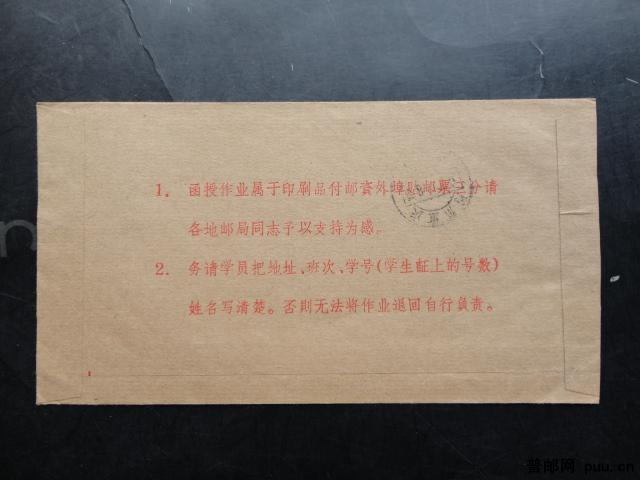 1. 函授作业属于印刷品付邮资外埠贴邮票三分请
各地邮局同志予以支持为感。
2. 务请学员把地址、班次、学号(学生证上的号数)
姓名写清楚。否则无法将作业退回自行负责。
普邮网 puu.cn